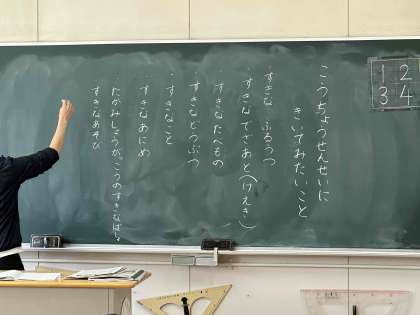 こうちょうせんせいに
きいてみたいこと
・すきな ふるうつ
・すきなでざあと(けえき)
・すきなたべもの
・すきなどうぶつ
・すきなこと
・すきなあにめ
・たかみしょうがっこうのすきなばしょ
・すきなあそび
1 2
3 4